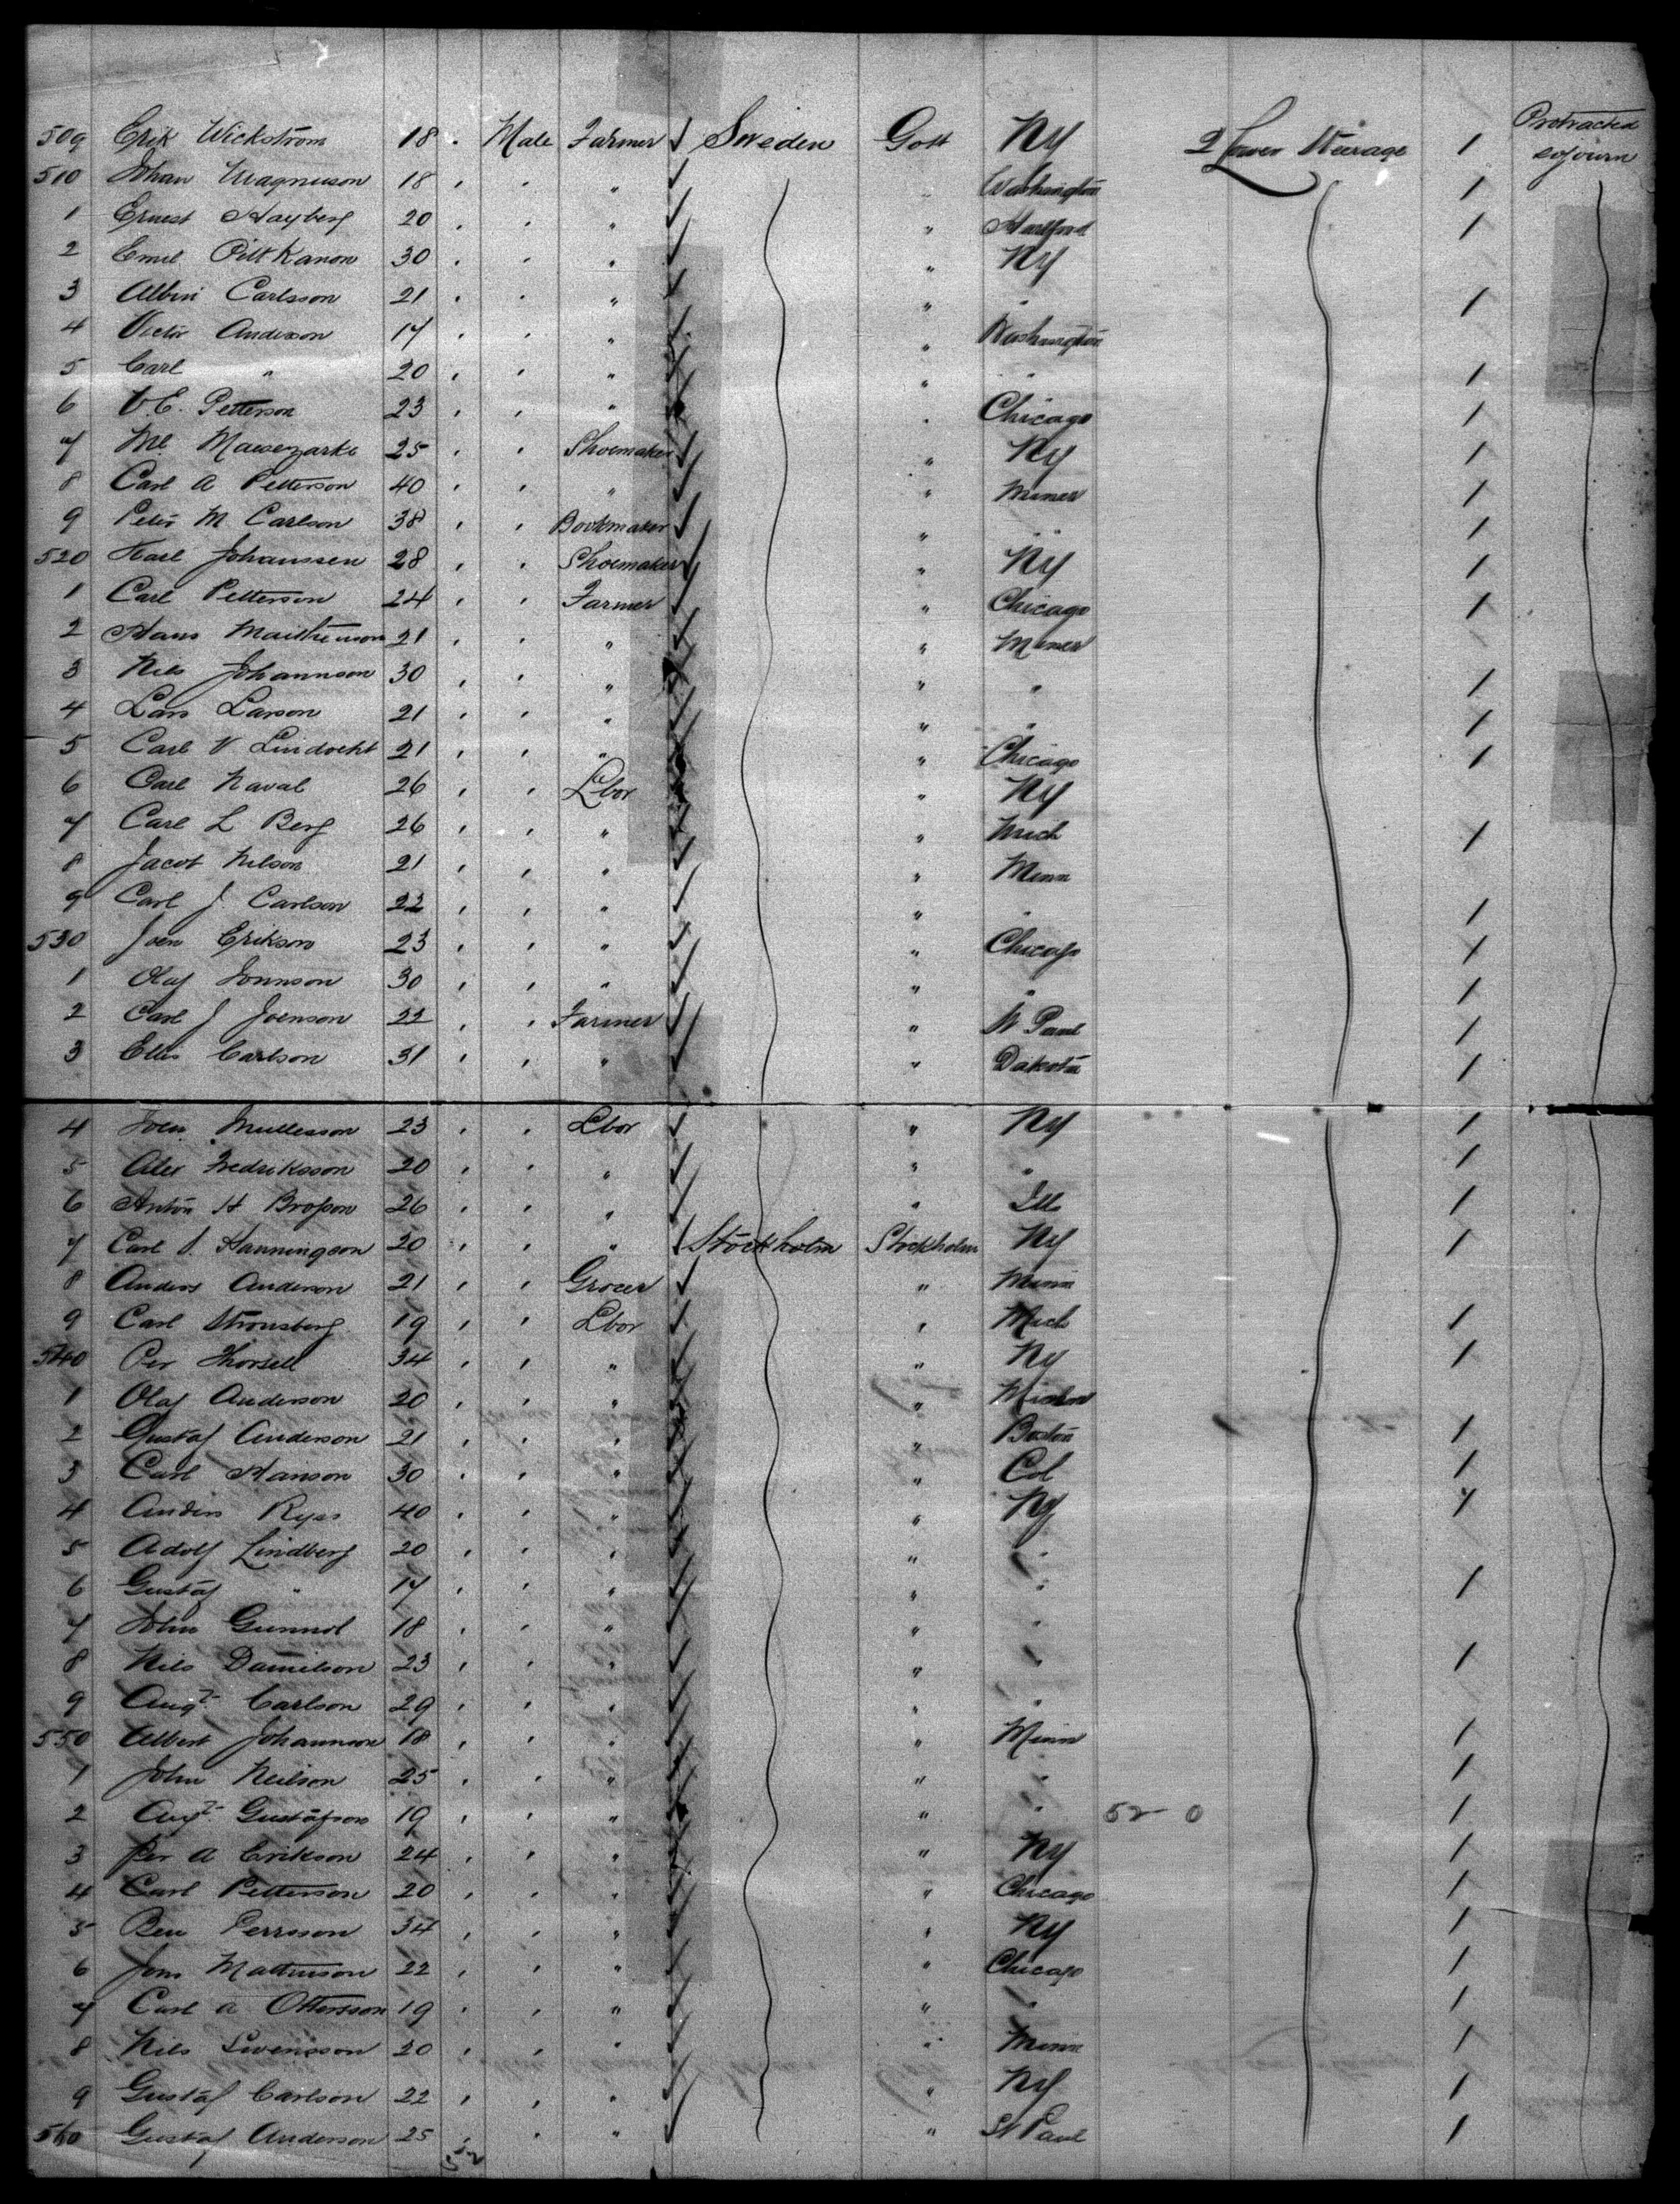 509 Erik Wickström 18 . Male Farmer ✓ Sweden Gott NY 2 Lower Steerage 1 Protracted sojourn
510 Johan Magnuson 18 " " " ✓ Washington 1
1 Ernest Hayberg 20 " " " ✓ " Hartford 1
2 Emil Pitt Kanon 30 " " " ✓ " NY
3 Albin Carlsson 21 " " " ✓ " " 1
4 Victor Anderson 17 " " " ✓ " Washington
5 Carl " 20 " " " ✓ " " 1
6 V.E. Petterson 23 " " " ✓ " Chicago 1
7 25 " " Shoemaker ✓ " NY 1
8 Carl A Petterson 40 " " " ✓ " 1
9 Peter M Carlson 38 " " Bootmaker ✓ " " 1
520 Karl Johanssen 28 " " Shoemaker ✓ " NY 1
1 Carl Petterson 24 " " Farmer ✓ " Chicago 1
2 Hans 21 " " " ✓ "
3 Nils Johannson 30 " " " ✓ " " 1
4 Lars Larson 21 " " " ✓ " " 1
5 Carl V 21 " " " ✓ " Chicago 1
6 Carl Naval 26 " " Lbor ✓ " NY
7 Carl L Berg 26 " " " ✓ " Mich 1
8 Jacob Nelson 21 " " " ✓ " Minn
9 Carl J. Carlson 22 " " " ✓ " " 1
530 Joen Erikson 23 " " " ✓ " Chicago 1
1 Olaf Jonnson 30 " " " ✓ " " 1
2 Carl J Joenson 22 " " Farmer ✓ " St Paul 1
3 Ellis Carlson 31 " " " ✓ " Dakota 1
4 23 " " Lbor ✓ " NY 1
5 Alex Fredriksson 20 " " " ✓ " " 1
6 Anton H 26 " " " ✓ " Ills 1
7 Carl S. Hanningson 20 " " " ✓ Stockholm Stockholm NY 1
8 Anders Anderson 21 " " Grocer ✓ " Minn
9 Carl Stromsberg 19 " " Lbor ✓ " Mich 1
540 Per Thorsell 34 " " " ✓ " NY 1
1 Olaf Anderson 20 " " " ✓ "
2 Gustaf Anderson 21 " " " ✓ " Boston 1
3 Carl Hanson 30 " " " ✓ " Col 1
4 Anders Ryss 40 " " " ✓ " NY 1
5 Adolf Lindberg 20 " " " ✓ " "
6 Gustaf " 17 " " " ✓ " " 1
7 John Gunnol 18 " " " ✓ " "
8 Nils Danielson 23 " " " ✓ " " 1
9 Augt Carlson 29 " " " ✓ " "
550 Albert Johannson 18 " " " ✓ " Minn 1
1 John Neilson 25 " " " ✓ " " 1
2 Augt Gustafson 19 " " " ✓ " " 52 0 1
3 Per A Erikson 24 " " " ✓ " NY 1
4 Carl Petterson 20 " " " ✓ " Chicago 1
5 Ben Perrsson 34 " " " ✓ " NY 1
6 Jons Mattinson 22 " " " ✓ " Chicago 1
7 Carl A Ottersson 19 " " " ✓ " " 1
8 Nils Svensson 20 " " " ✓ " Minn 1
9 Gustaf Carlson 22 " " " ✓ " NY 1
560 Gustaf Anderson 25 " " " ✓ " St Paul 1
52